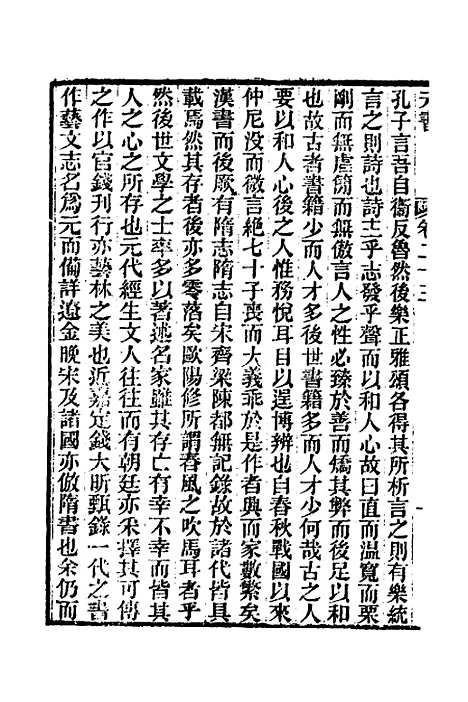 元書　卷二十三
孔子言吾自衞反魯然後樂正雅頌各得其所析言之則有樂統
言之則詩也詩主乎志發乎聲而以和人心故曰直而温寬而栗
剛而無虐簡而無傲言人之性必臻於善而矯其弊而後足以和
也故古者書籍少而人才多後世書籍多而人才少何哉古之人
要以和人心後之人惟務悅耳目以逞博辨也自春秋戰國以來
仲尼没而微言絶七十子喪而大義乖於是作者興而家數繁矣
漢書而後厥有隋志隋志自宋齊梁陳都無記錄故於諸代皆具
載焉然其存者後亦多零落矣歐陽修所謂春風之吹馬耳者乎
然後世文學之士率多以著述名家雖其存亡有幸不幸而皆其
人之心之所存也元代經生文人往往而有朝廷亦采擇其可傳
之作以官錢刊行亦藝林之美也近嘉定錢大昕甄錄一代之書
作藝文志名爲元而備詳遼金晚宋及諸國亦倣隋書也余仍而